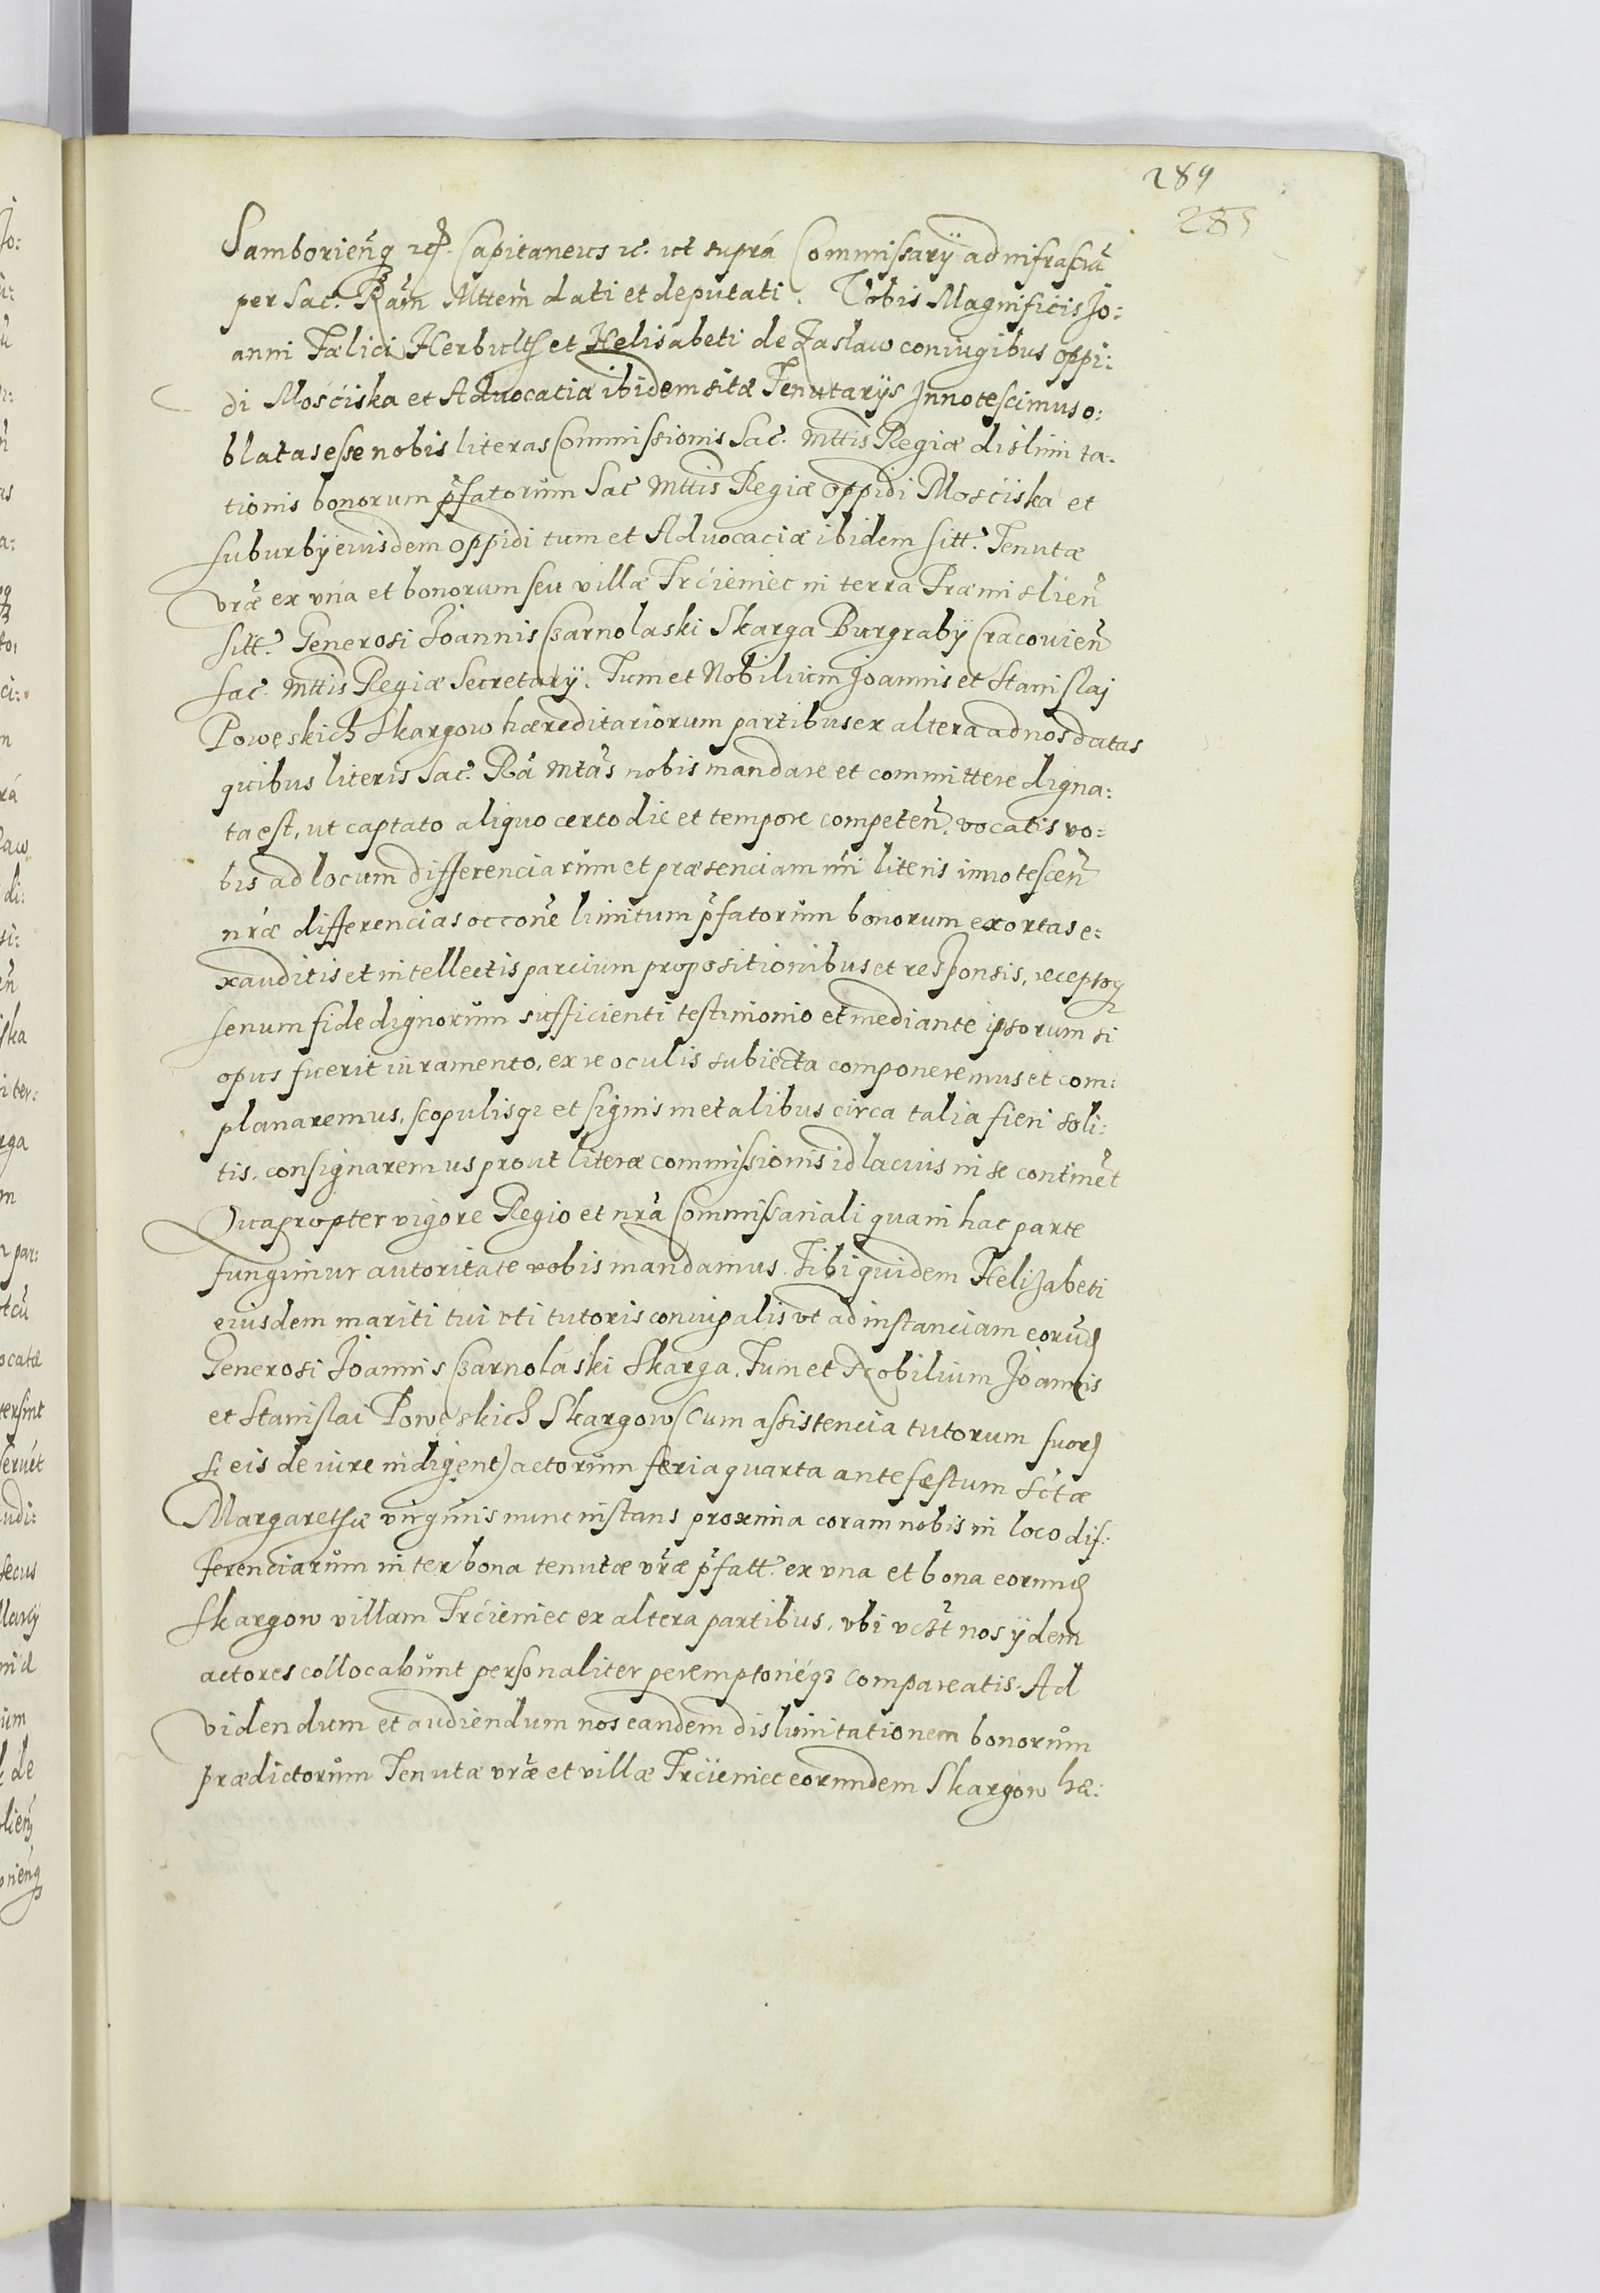 289
285
Samborieñq ꝛcꝫ. Capitaneus ꝛc. ut suprá Commissarÿ ad infrascũ
per Sac. Rãm Mttem̃ dati et deputati. Vobis Magnificis Jo:
anni Fælici Herbultħ et Helisabeti de Zaslaw coniugibus oppi:
di Mościska et Advocaciæ ibidem sitæ Tenutarÿs Innotescimus o:
blatas esse nobis literas Commissionis Sac. Mttis Regiæ dislimita-
tionis bonorum p̃fatorum Sac Mttis Regiæ oppidi Mościska et
suburbÿ eiusdem oppidi tum et Advocaciæ ibidem sitt. Tenutæ
vr̃æ ex vna et bonorum seu villæ Trcieniec in terra Præmislieñ
sitt. Generosi Joannis Czarnolaski Skarga Burgrabÿ Cracovieñ
Sac. Mttis Regiæ Secretarÿ. Tum et Nobilium Joannis et Stanislaj
Powęskich Skargow hæreditariorum partibus ex altera ad nos datas
quibus literis Sac. Rã Mtãs nobis mandare et committere digna:
ta est, ut captato aliquo certo die et tempore competeñ. vocatis vo-
bis ad locum differenciarum et præsenciam nr̃i literis innotesceñ
nr̃æ differencias occoñe limitum p̃fatorum bonorum exortas e:
xauditis et intellectis parcium propositionibus et responsis, receptoq
senum fide dignorum sufficienti testimonio et mediante ipsorum si
opus fuerit iuramento, ex re oculis subiecta componeremus et com:
planaremus, scopulisqꝫ et signis metalibus circa talia fieri soli:
tis, consignaremus prout literæ commissionis id lacius in se continẽt
Quapropter vigore Regio et nr̃a Commissariali qua in hac parte
fungimur autoritate vobis mandamus. Tibi quidem Helizabeti
eiusdem mariti tui uti tutoris coniugalis ut ad instanciam eorũd
Generosi Joannis Czarnolaski Skarga. Tum et Nobilium Joannis
et Stanislai Powęskich Skargow (Cum assistencia tutorum suorꝫ
si eis de iure indigent) actorum feria quarta ante festum sctæ
Margarethæ virginis nunc instans proxima coram nobis in loco dif:
ferenciarum inter bona tenutæ vr̃æ p̃fatt. ex vna et bona eorund
Skargow villam Trcieniec ex altera partibus, vbi nos ÿdem
actores collocabunt personaliter peremptorieqꝫ compareatis. Ad
videndum et audiendum nos eandem dislimitationem bonorum
prædictorum Tenutæ vr̃æ et villæ Trcieniec eorundem Skargow hæ: